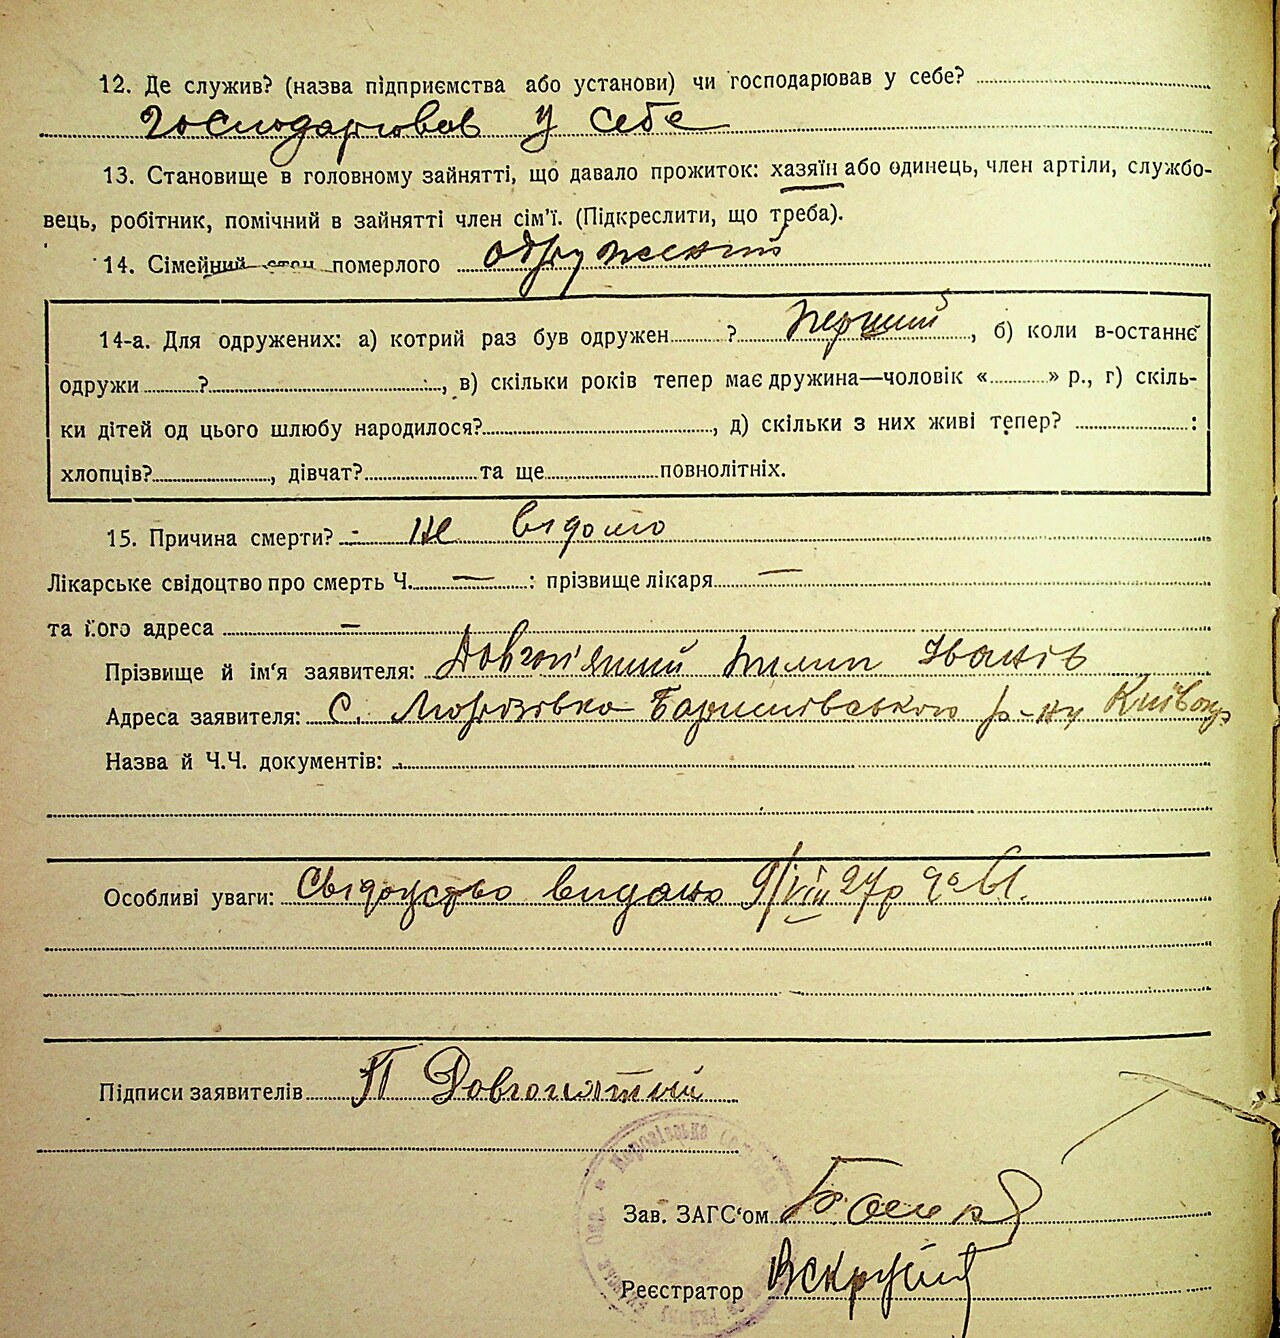 12. Де служив? (назва підприємства або установи) чи господарював у себе?
Господарював у себе
13. Становище в головному зайнятті, що давало прожиток: хазяїн або одинець, член артіли, службо-
вець, робітник, помічний в зайнятті член сім'ї. (Підкреслити, що треба).
14. Сімейний стан померлого одружений
14-а. Для одружених: а) котрий раз був одружен ? перший, б) коли в-останнє
одружи ? , в) скільки років тепер має дружина—чоловік « » р., г) скіль-
ки дітей од цього шлюбу народилося? , д) скільки з них живі тепер? :
хлопців? , дівчат? та ще повнолітніх.
15. Причина смерти? - не відомо
Лікарське свідоцтво про смерть Ч. — : прізвище лікаря —
та його адреса —
Прізвище й ім'я заявителя: Довгоп'ятий Пилип Іванів
Адреса заявителя: с. Морозівка Баришівського р-ну Київокр
Назва й Ч.Ч. документів:
Особливі уваги: Свідоцтво видано 9/VIII 27р
Підписи заявителів П Довгопятый
Морозівська
Зав. ЗАГС'ом
Реєстратор